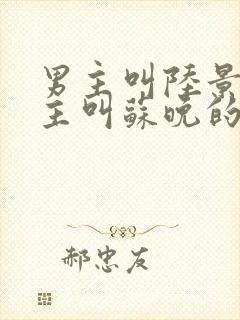 男主叫陸景
主叫蘇晚的
郝忠友